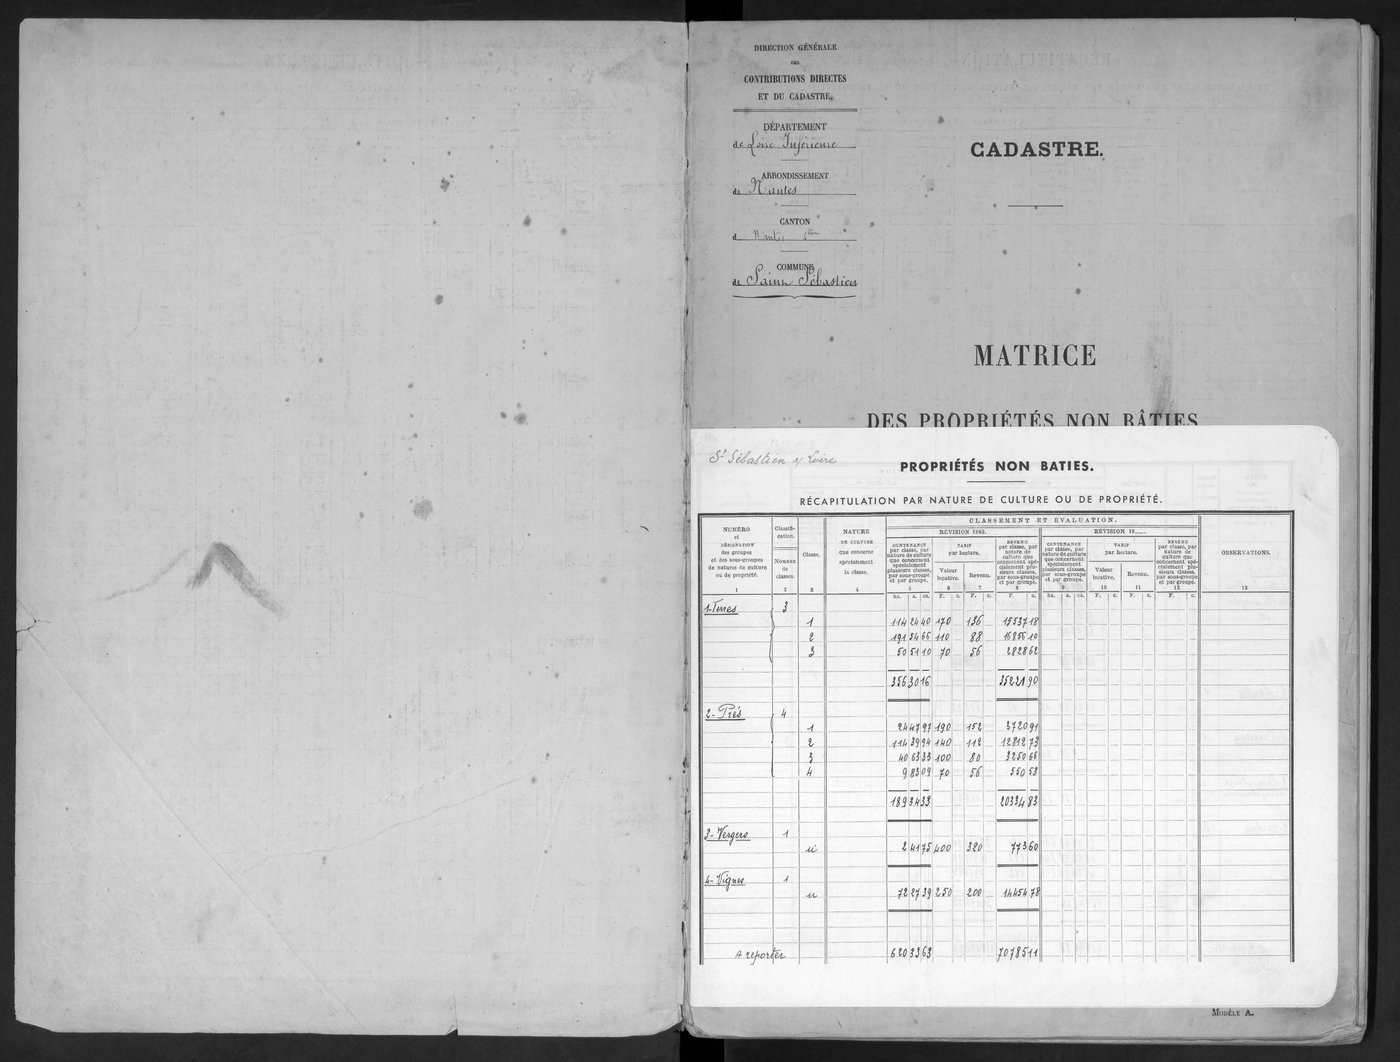 DIRECTION GÉNÉRALE
DES
CONTRIBUTIONS DIRECTES
ET DU CADASTRE.
DÉPARTEMENT
de Loire Inférieure
ARRONDISSEMENT
de Nantes
CANTON
d Nantes 4ème
COMMUNE
de Saint Sébastien
CADASTRE.
MATRICE
DES PROPRIÉTÉS NON BÂTIES
St Sébastien s/ Loire
PROPRIÉTÉS NON BATIES.
RÉCAPITULATION PAR NATURE DE CULTURE OU DE PROPRIÉTÉ.
NUMÉRO et DÉSIGNATION des groupes et des sous-groupes de natures de culture ou de propriété. 1
Classifi-cation. NOMBRE de classes. 2
Classe. 3
NATURE DE CULTURE que concerne spécialement la classe. 4
CLASSEMENT ET ÉVALUATION.
RÉVISION 1963.
CONTENANCE par classe, par nature de culture que concernent spécialement plusieurs classes, par sous-groupe et par groupe.
TARIF par hectare.
Valeur locative. 6
Revenu. 7
REVENU par classe, par nature de culture que concernent spécialement plusieurs classes, par sous-groupe et par groupe. 8
RÉVISION 19
CONTENANCE par classe, par nature de culture que concernent spécialement plusieurs classes, par sous-groupe et par groupe. 9
TARIF par hectare.
Valeur locative. 10
Revenu. 11
REVENU par classe, par nature de culture que concernent spécialement plusieurs classes, par sous-groupe et par groupe. 12
OBSERVATIONS. 13
ha. a. ca. F. c. F. c. F. c. ha. a. ca. F. c. F. c. F. c.
1-Terres 3
1 114 24 40 170 136 15537 18
2 191 54 66 110 88 16856 10
3 50 51 10 70 56 2828 62
356 30 16 35221 90
2- Prés 4
1 24 47 97 190 152 3720 91
2 114 39 94 140 112 12812 73
3 40 63 33 100 80 3250 66
4 9 83 09 70 56 550 53
189 34 33 20334 83
3- Vergers 1
u 2 41 75 400 320 773 60
4- Vignes 1
u 72 27 39 250 200 14454 78
A reporter 620 33 63 70785 11
MODÈLE A.